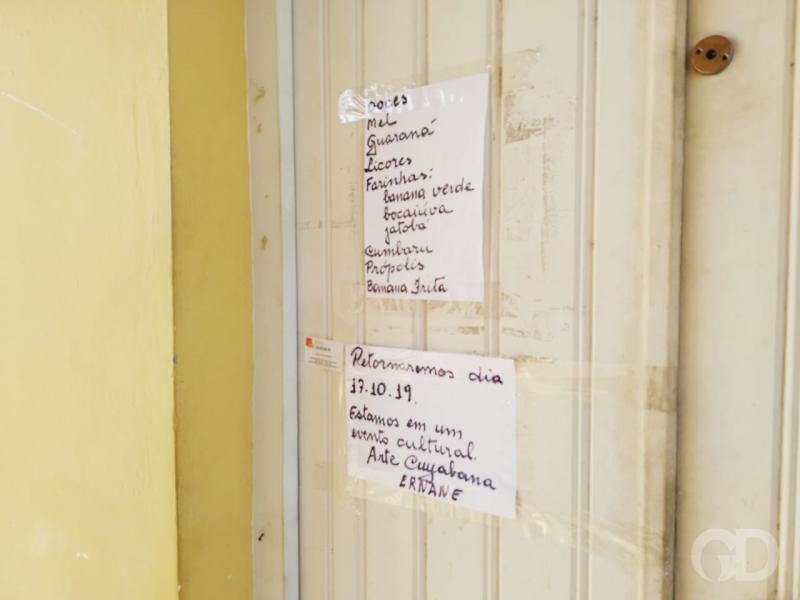 Doces
Mel
Guaraná
Licores
Farinhas:
banana verde
bocaiúva
jatobá
Cumbaru
Própolis
Banana Frita
Retornaremos dia
17.10.19.
Estamos em um
evento cultural.
Arte Cuyabana
ERNANE
GD